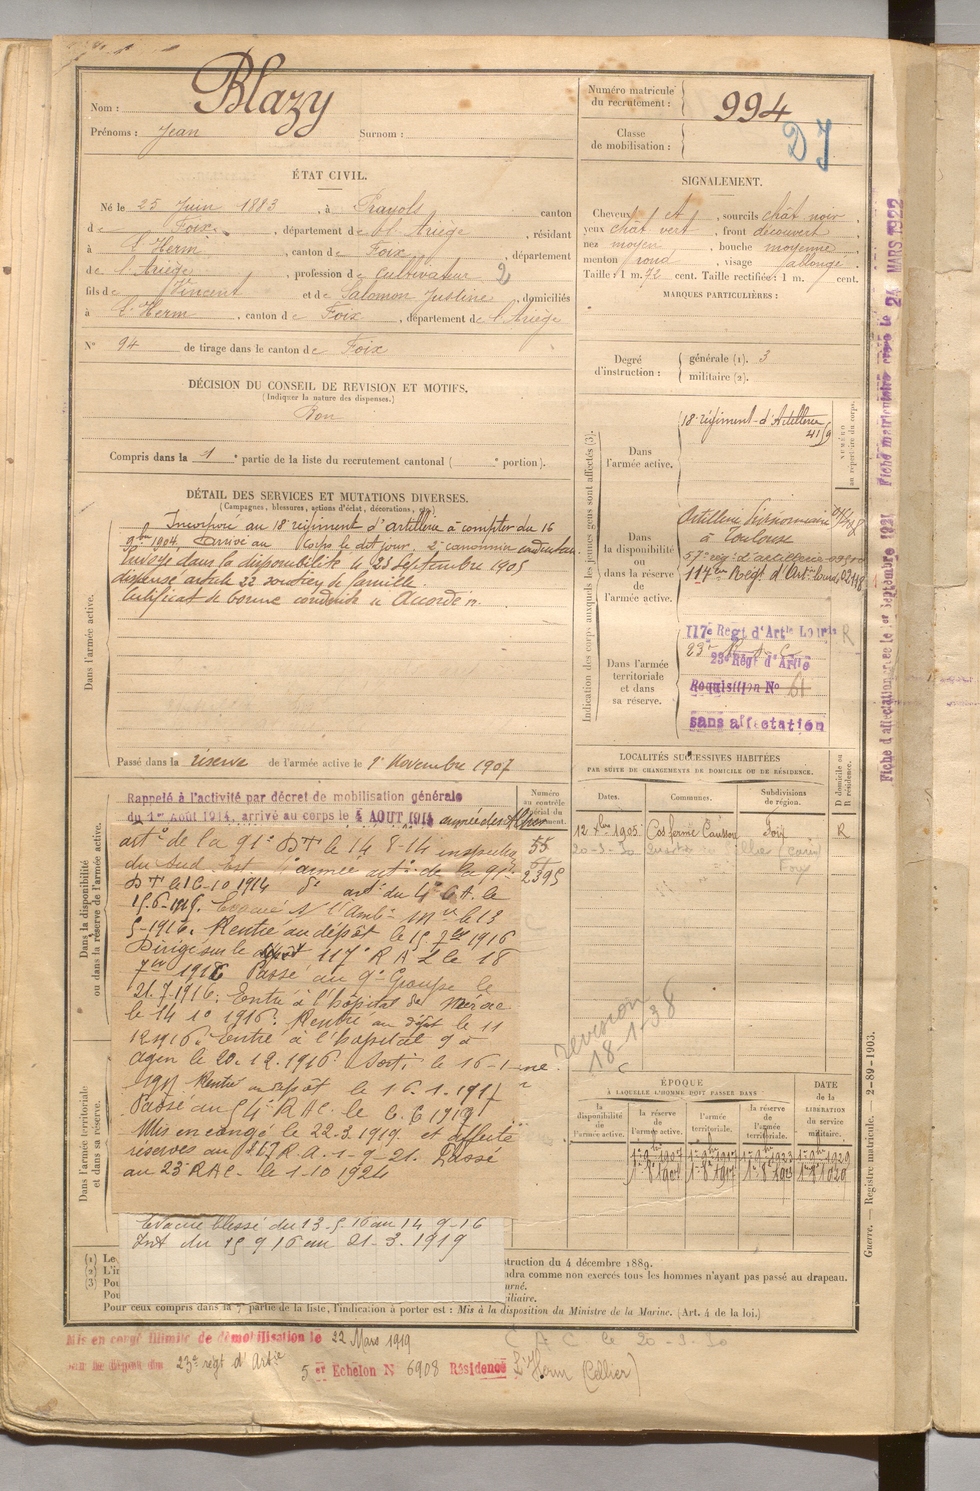 Blazy
Nom :
Prénoms : Jean Surnom :
ÉTAT CIVIL.
Né le 25 Juin 1883, à Prayols canton
de Foix, département de l'Ariège, résidant
à L'Herm, canton de Foix, département
de l'Ariège, profession de Cultivateur
fils de Vincent et de Salomon Justine, domiciliés
à L'Herm, canton de Foix, département de l'Ariège
N° 94 de tirage dans le canton de Foix
DÉCISION DU CONSEIL DE REVISION ET MOTIFS.
(Indiquer la nature des dispenses.)
Bon
Compris dans la 1e partie de la liste du recrutement cantonal ( e portion).
DÉTAIL DES SERVICES ET MUTATIONS DIVERSES.
(Campagnes, blessures, actions d'éclat, décorations, etc.)
Incorporé au 18e régiment d'artillerie à compter du 16
9bre 1904. Arrivé au Corps le dit jour. 2e canonnier conducteur.
Envoyé dans la disponibilité le 23 Septembre 1905
dispensé article 22 soutien de famille.
Certificat de bonne conduite "Accordé".
Dans l'armée active.
Passé dans la réserve de l'armée active le 1er Novembre 1907
Dans la disponibilité
ou dans la réserve de l'armée active.
Numéro
au contrôle
spécial du
recrutement.
Rappelé à l'activité par décret de mobilisation générale
du 1er Août 1914, arrivé au corps le 4 AOUT 1914 armée des Alpes
artie de la 91e DT le 14-8-14
du Sud Est. armée artie de la 91e
DT le 16-10-1914 artie du 4e C.A. le
15-6-1915. Evacué le 13
5-1916. Rentré au dépôt le 15 7bre 1916
Dirigé sur le dépôt 117e R A L le 18
7bre 1916 Passé au 9e Groupe le
21.7.1916. Entré à l'hôpital de Nérac
le 14 10 1916. Rentré au dépôt le 11
12 1916. Entré à l'hôpital
Agen le 20.12.1916. Sorti le 16-1-
1917 Rentré au dépôt le 16.1.1917
Passé au R.A.C. le 6.6 1917
Mis en congé le 22.3.1919 et affecté
réserves au R.A. 1-9-21. Passé
au 23e RAC le 1-10 1924
55
2395
Evacué blessé du 13-5-16 au 14-9-16
Int du 15 9 16 au 21-3-1919
Dans l'armée territoriale
et dans sa réserve.
Numéro matricule
du recrutement : 994
Classe
de mobilisation :
SIGNALEMENT.
Cheveux et, sourcils chât noir,
yeux chât vert, front découvert,
nez moyen, bouche moyenne,
menton rond, visage allongé.
Taille : 1 m. 72 cent. Taille rectifiée : 1 m. cent.
MARQUES PARTICULIÈRES :
Degré
d'instruction :
générale (1). 3
militaire (2).
Indication des corps auxquels les jeunes gens sont affectés (3).
NUMÉRO
au répertoire du corps.
Dans
l'armée active.
18e régiment d'Artillerie
Dans
la disponibilité
ou
dans la réserve
de
l'armée active.
Artillerie Divisionnaire
à Toulouse
57e rég. d'artillerie
117e Régt d'Artie lourde
Dans l'armée
territoriale
et dans
sa réserve.
117e Régt d'Artie Lourde R
23e Régt d'Artie
Réquisition No
sans affectation
LOCALITÉS SUCCESSIVES HABITÉES
PAR SUITE DE CHANGEMENTS DE DOMICILE OU DE RÉSIDENCE.
Dates. Communes. Subdivisions
de région.
D domicile ou
R résidence.
12 Xbre 1905 Cos ferme Caussou Foix R
20-3-30
Foix
revision
18-1-38
ÉPOQUE
À LAQUELLE L'HOMME DOIT PASSER DANS
la
disponibilité
de
l'armée active.
la réserve
de
l'armée active.
l'armée
territoriale.
la réserve
de
l'armée
territoriale.
DATE
de la
LIBÉRATION
du service
militaire.
Guerre. — Registre matricule. 2-89-1903.
Fiche d'affectation créée le 1er Septembre 1921
Fiche matriculaire créée le 24 MARS 1922
(1) Le
(2) L'in
(3) Pou
Pou
struction du 4 décembre 1889.
ndra comme non exercés tous les hommes n'ayant pas passé au drapeau.
urné.
iliaire.
Pour ceux compris dans la 7e partie de la liste, l'indication à porter est : Mis à la disposition du Ministre de la Marine. (Art. 4 de la loi.)
Mis en congé illimité de démobilisation le 22 Mars 1919
par le dépôt du 23e régt d'Artie
5er Echelon N 6908 Résidence L'Herm (Cellier)
C A C. le 20-3-30